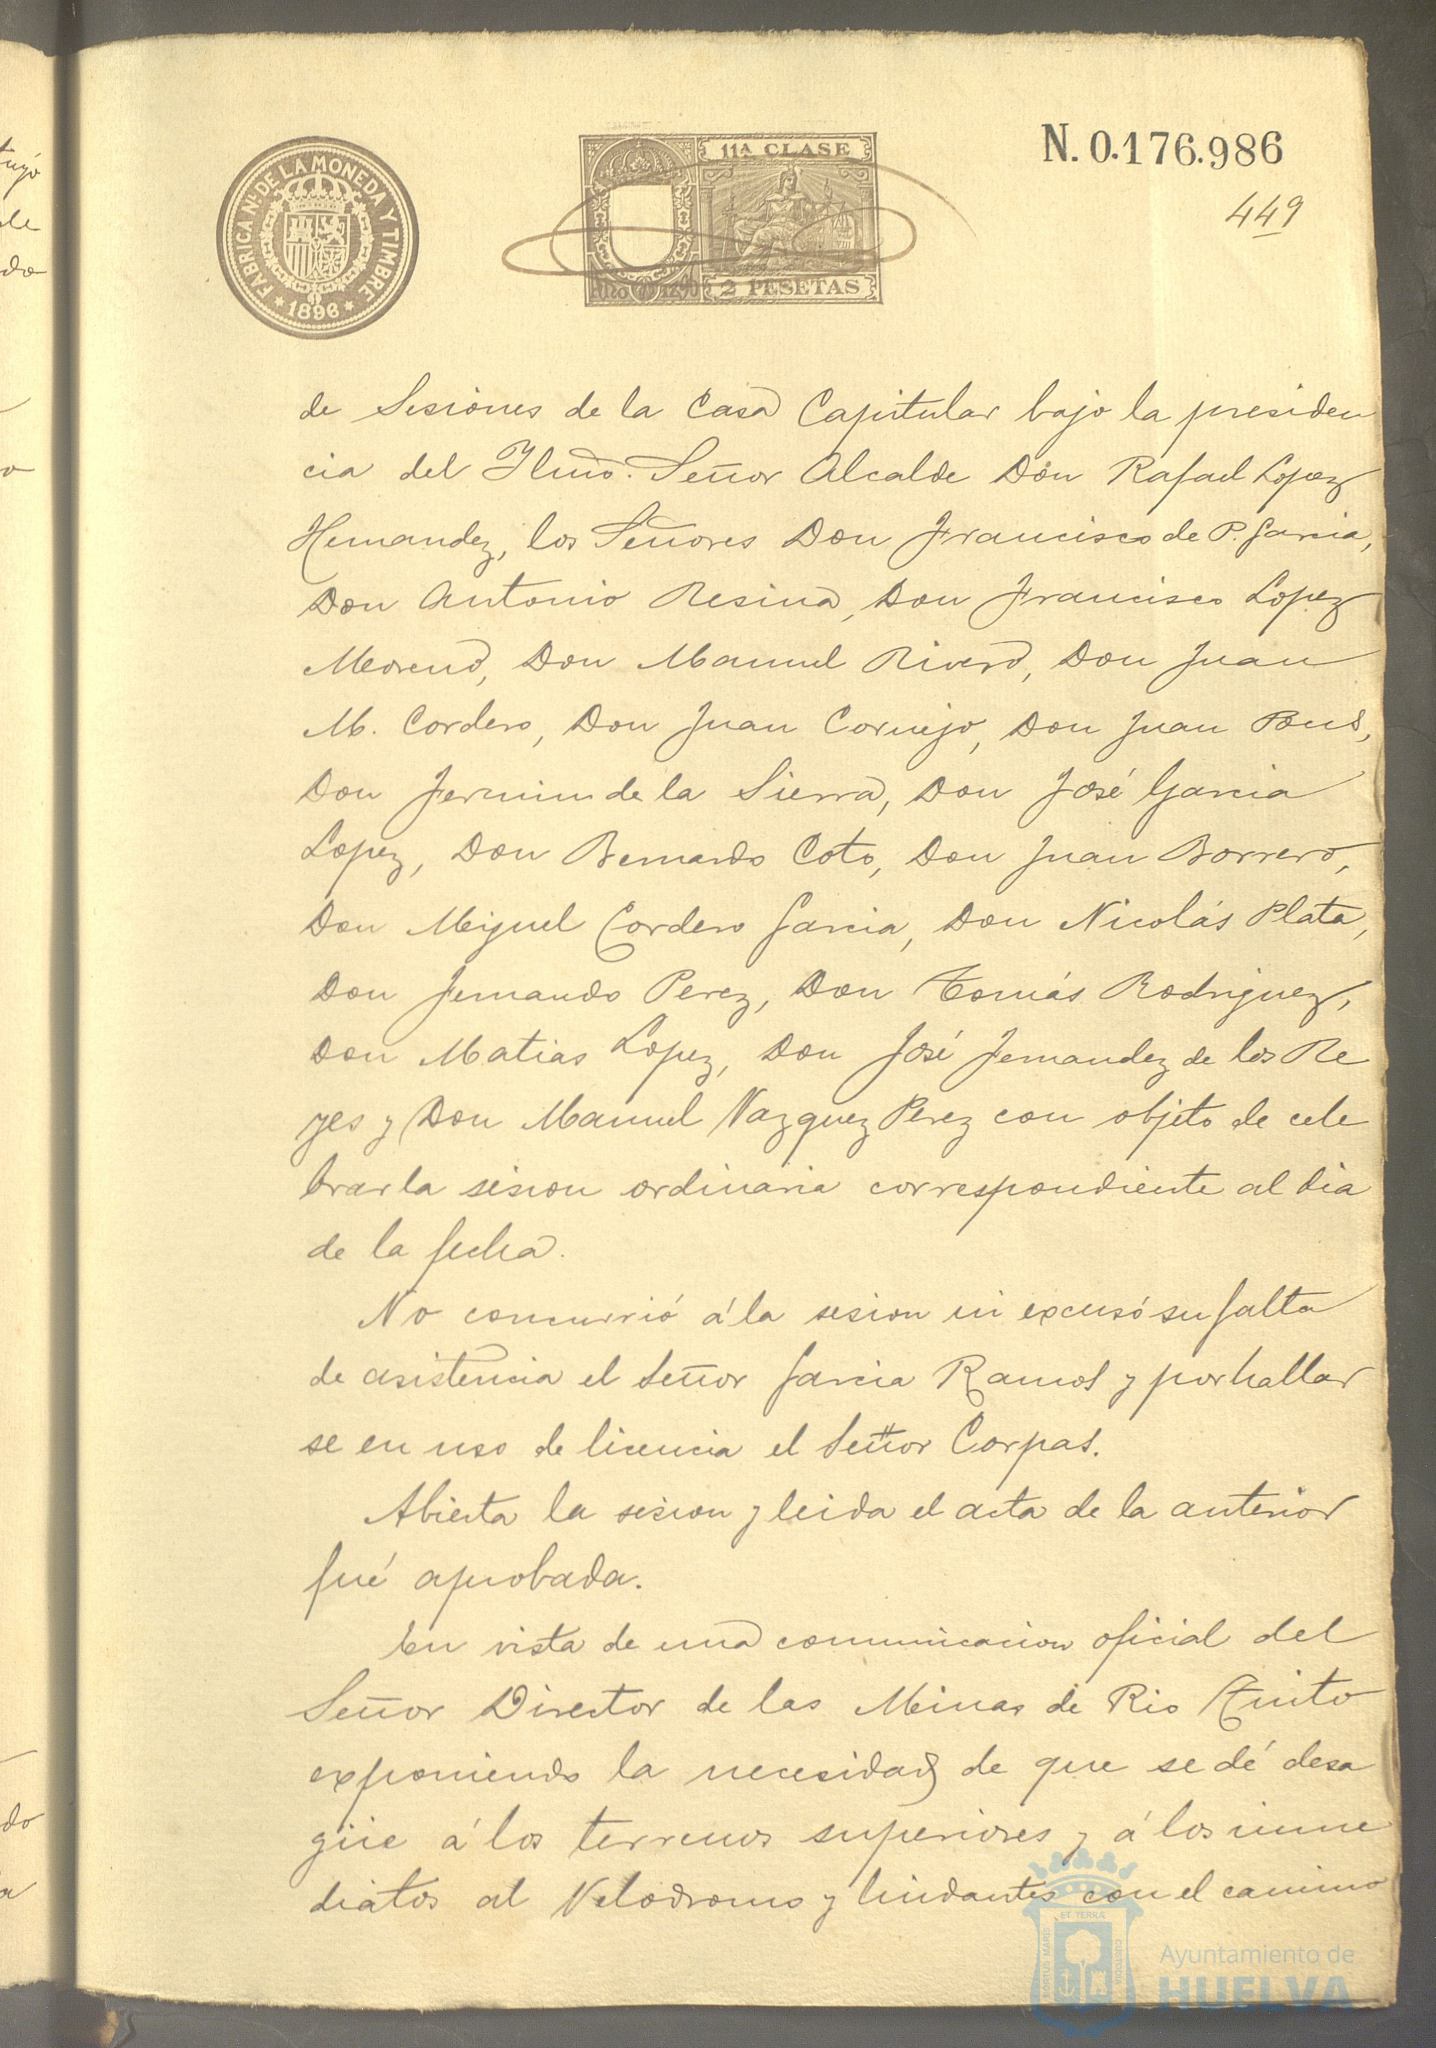 FABRICA Nl. DE LA MONEDA Y TIMBRE
* 1896 *
11ª CLASE
2 PESETAS
N. 0.176.986
449
de Sesiones de la Casa Capitular bajo la presiden
cia del Ylmo. Señor Alcalde Don Rafael Lopez
Hernandez, los Señores Don Francisco de P. Garcia,
Don Antonio Resina, Don Francisco Lopez
Moreno, Don Manuel Rivero, Don Juan
M. Cordero, Don Juan Cornejo, Don Juan Pons,
Don Fermin de la Sierra, Don José Garcia
Lopez, Don Bernardo Coto, Don Juan Borrero,
Don Miguel Cordero Garcia, Don Nicolás Plata,
Don Fernando Perez, Don Tomás Rodriguez,
Don Matias Lopez, Don José Fernandez de los Re
yes y Don Manuel Vazquez Perez con objeto de cele
brar la sesion ordinaria correspondiente al dia
de la fecha.
No concurrió á la sesion ni excusó su falta
de asistencia el Señor Garcia Ramos y por hallar
se en uso de licencia el Señor Corpas.
Abierta la sesion y leida el acta de la anterior
fué aprobada.
En vista de una comunicacion oficial del
Señor Director de las Minas de Rio Tinto
exponiendo la necesidad de que se dé desa
güe á los terrenos superiores y á los inme
diatos al Velodromo y lindantes con el camino
Ayuntamiento de
HUELVA